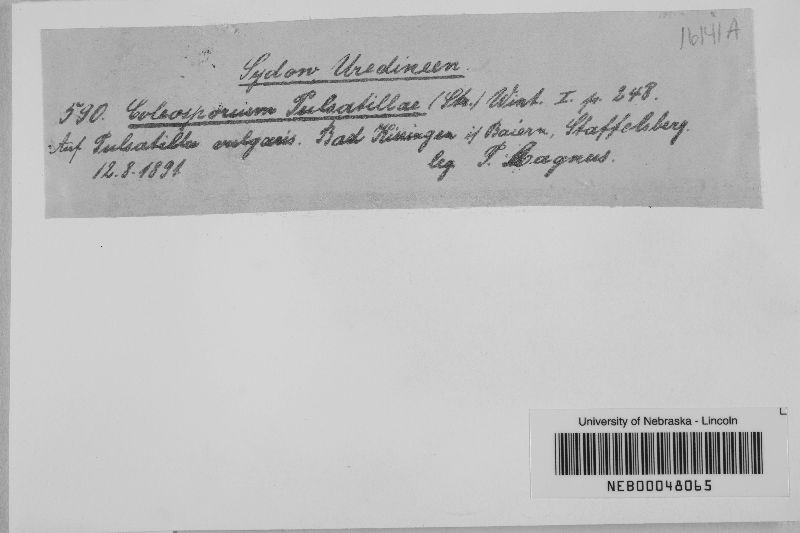 16141A
Sydow Uredineen.
590. Coleosporium Pulsatillae (Str.) Wint. I. p. 248.
Auf Pulsatilla vulgaris. Bad Kissingen i/ Baiern, Staffelsberg.
12.8.1891 leg P. Magnus.
University of Nebraska - Lincoln
NEB00048065